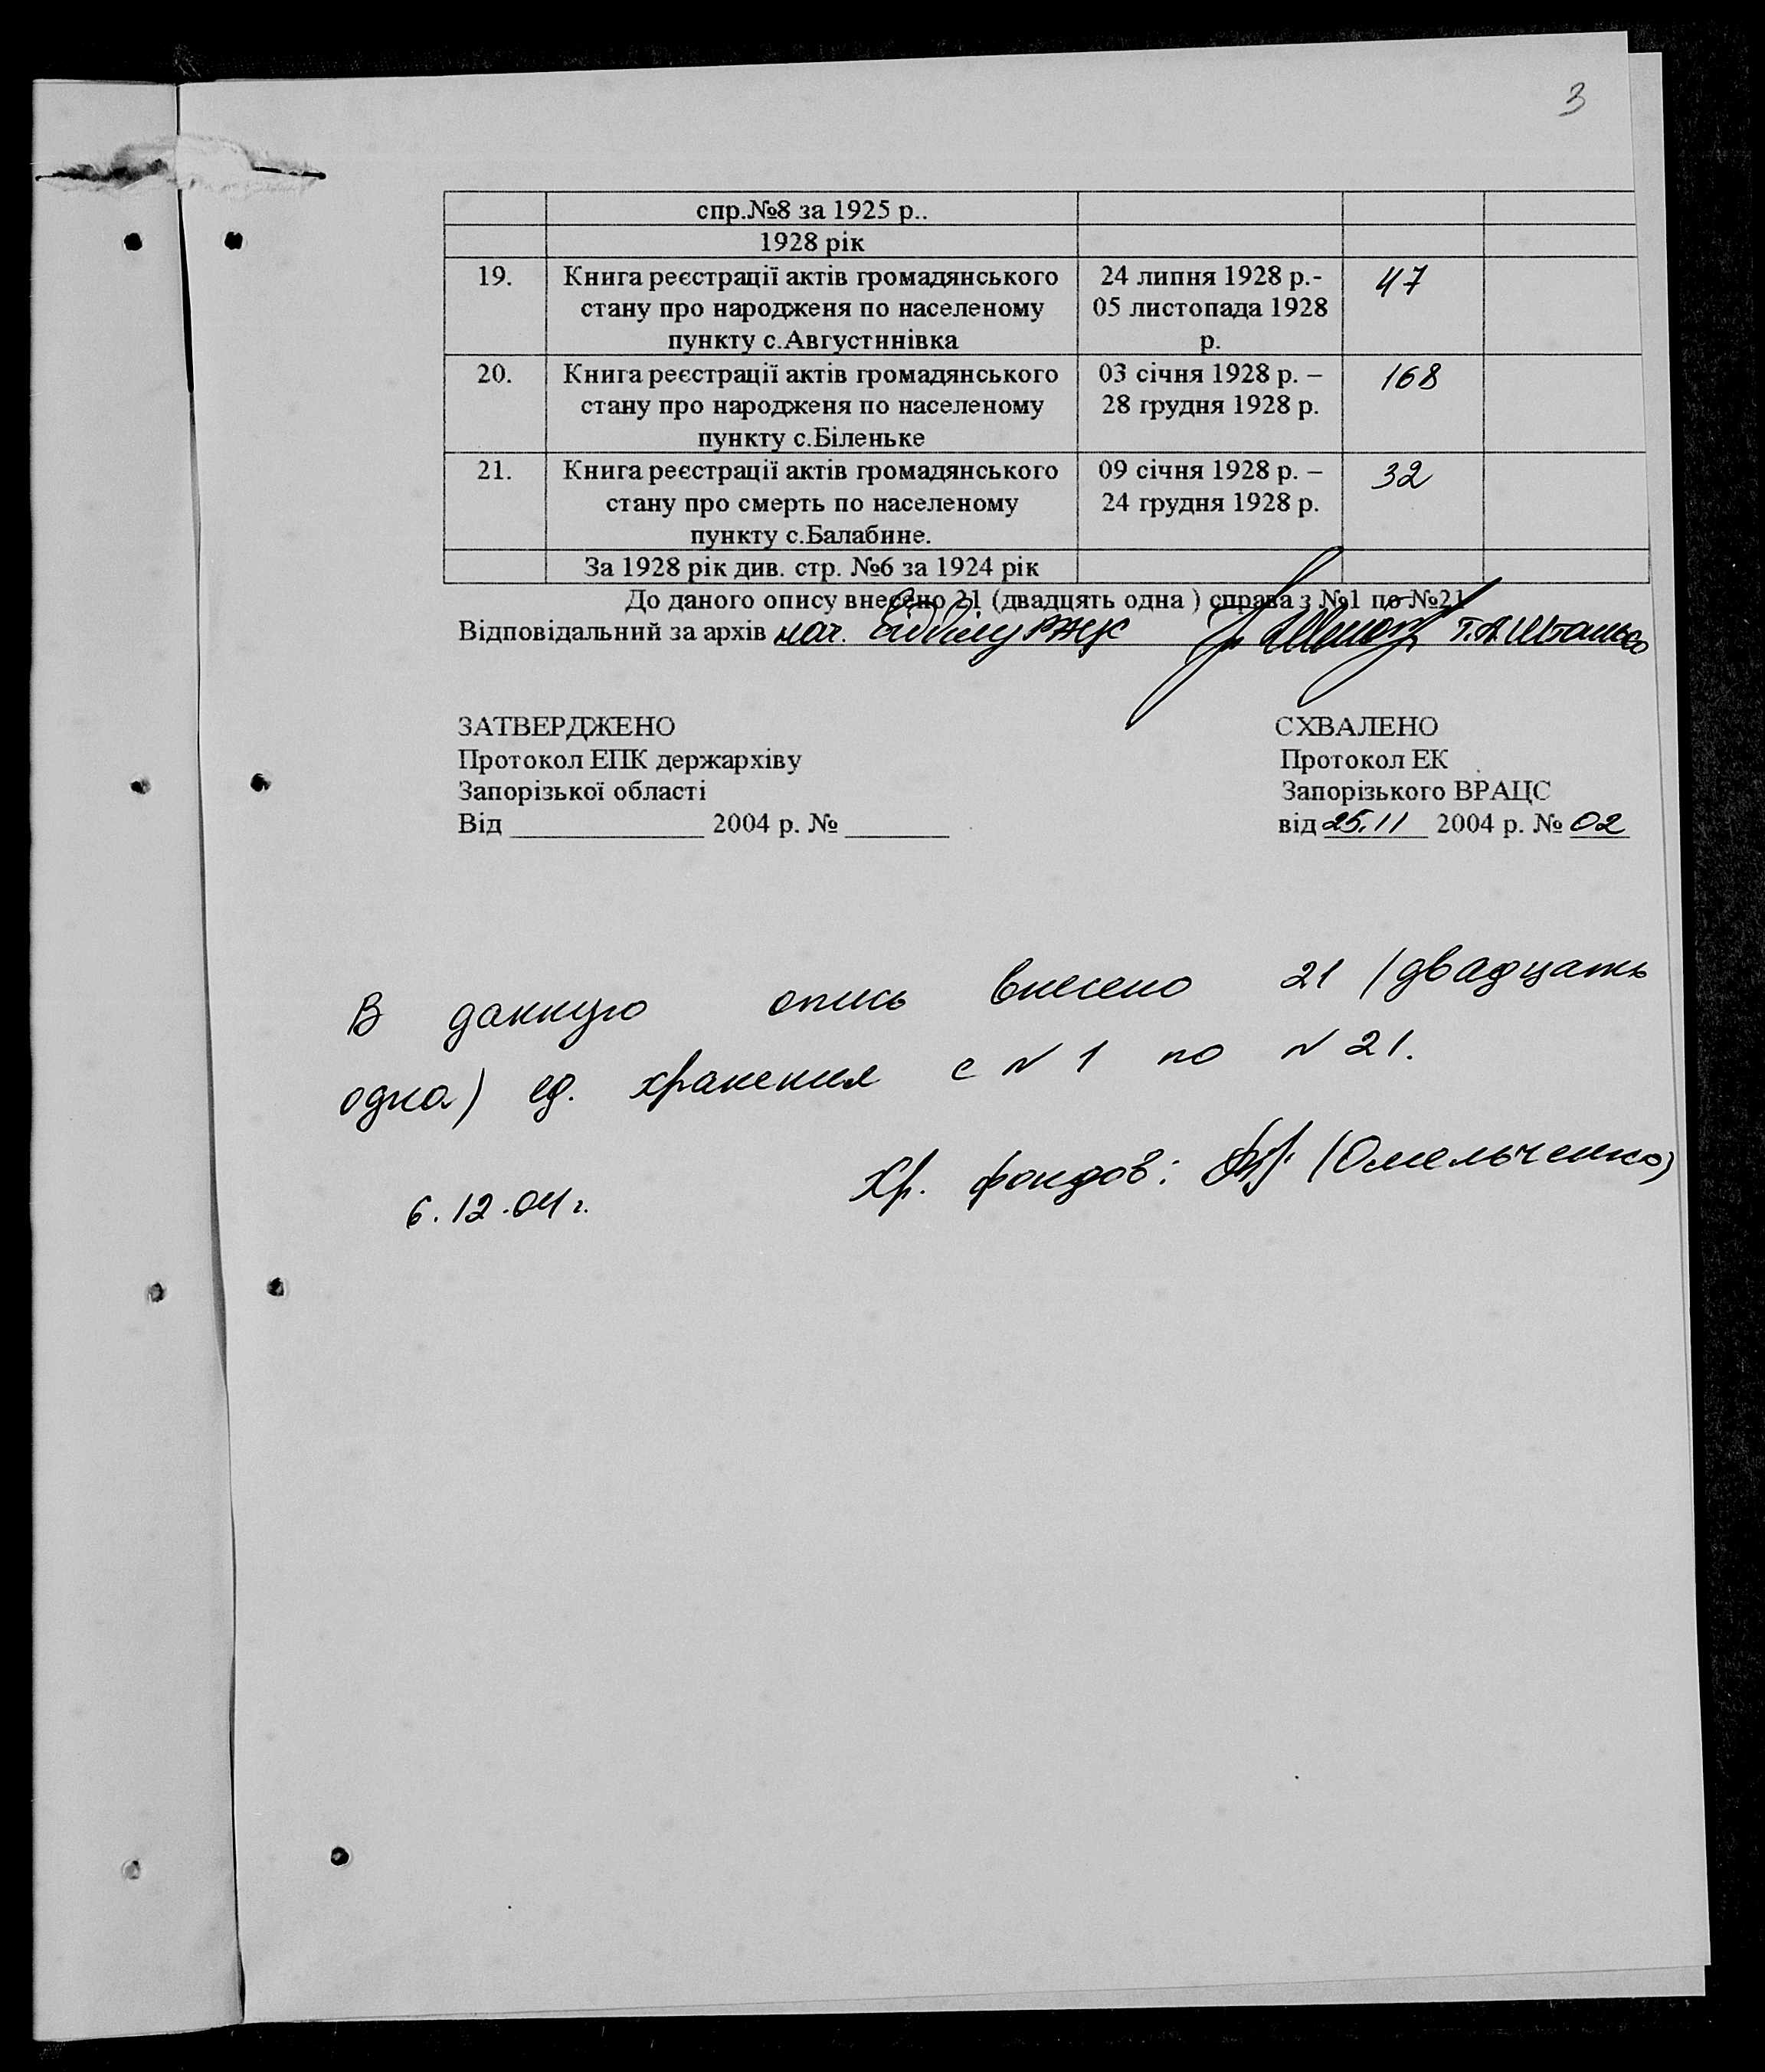 3
спр.№8 за 1925 р..
1928 рік
19. Книга реєстрації актів громадянського 24 липня 1928 р.- 47
стану про народженя по населеному 05 листопада 1928
пункту с.Августинівка р.
20. Книга реєстрації актів громадянського 03 січня 1928 р. – 168
стану про народженя по населеному 28 грудня 1928 р.
пункту с.Біленьке
21. Книга реєстрації актів громадянського 09 січня 1928 р. – 32
стану про смерть по населеному 24 грудня 1928 р.
пункту с.Балабине.
За 1928 рік див. стр. №6 за 1924 рік
До даного опису внесено 21 (двадцять одна ) справа з №1 по №21
Відповідальний за архів нач. відділу Т.А.
ЗАТВЕРДЖЕНО СХВАЛЕНО
Протокол ЕПК держархіву Протокол ЕК
Запорізької області Запорізького ВРАЦС
Від ______________ 2004 р. № _______ від 25.11 2004 р. № 02
В данную опись внесено 21 (двадцать
одна) ед. хранения с № 1 по № 21.
Хр. фондов: (Омельченко)
6.12.04г.